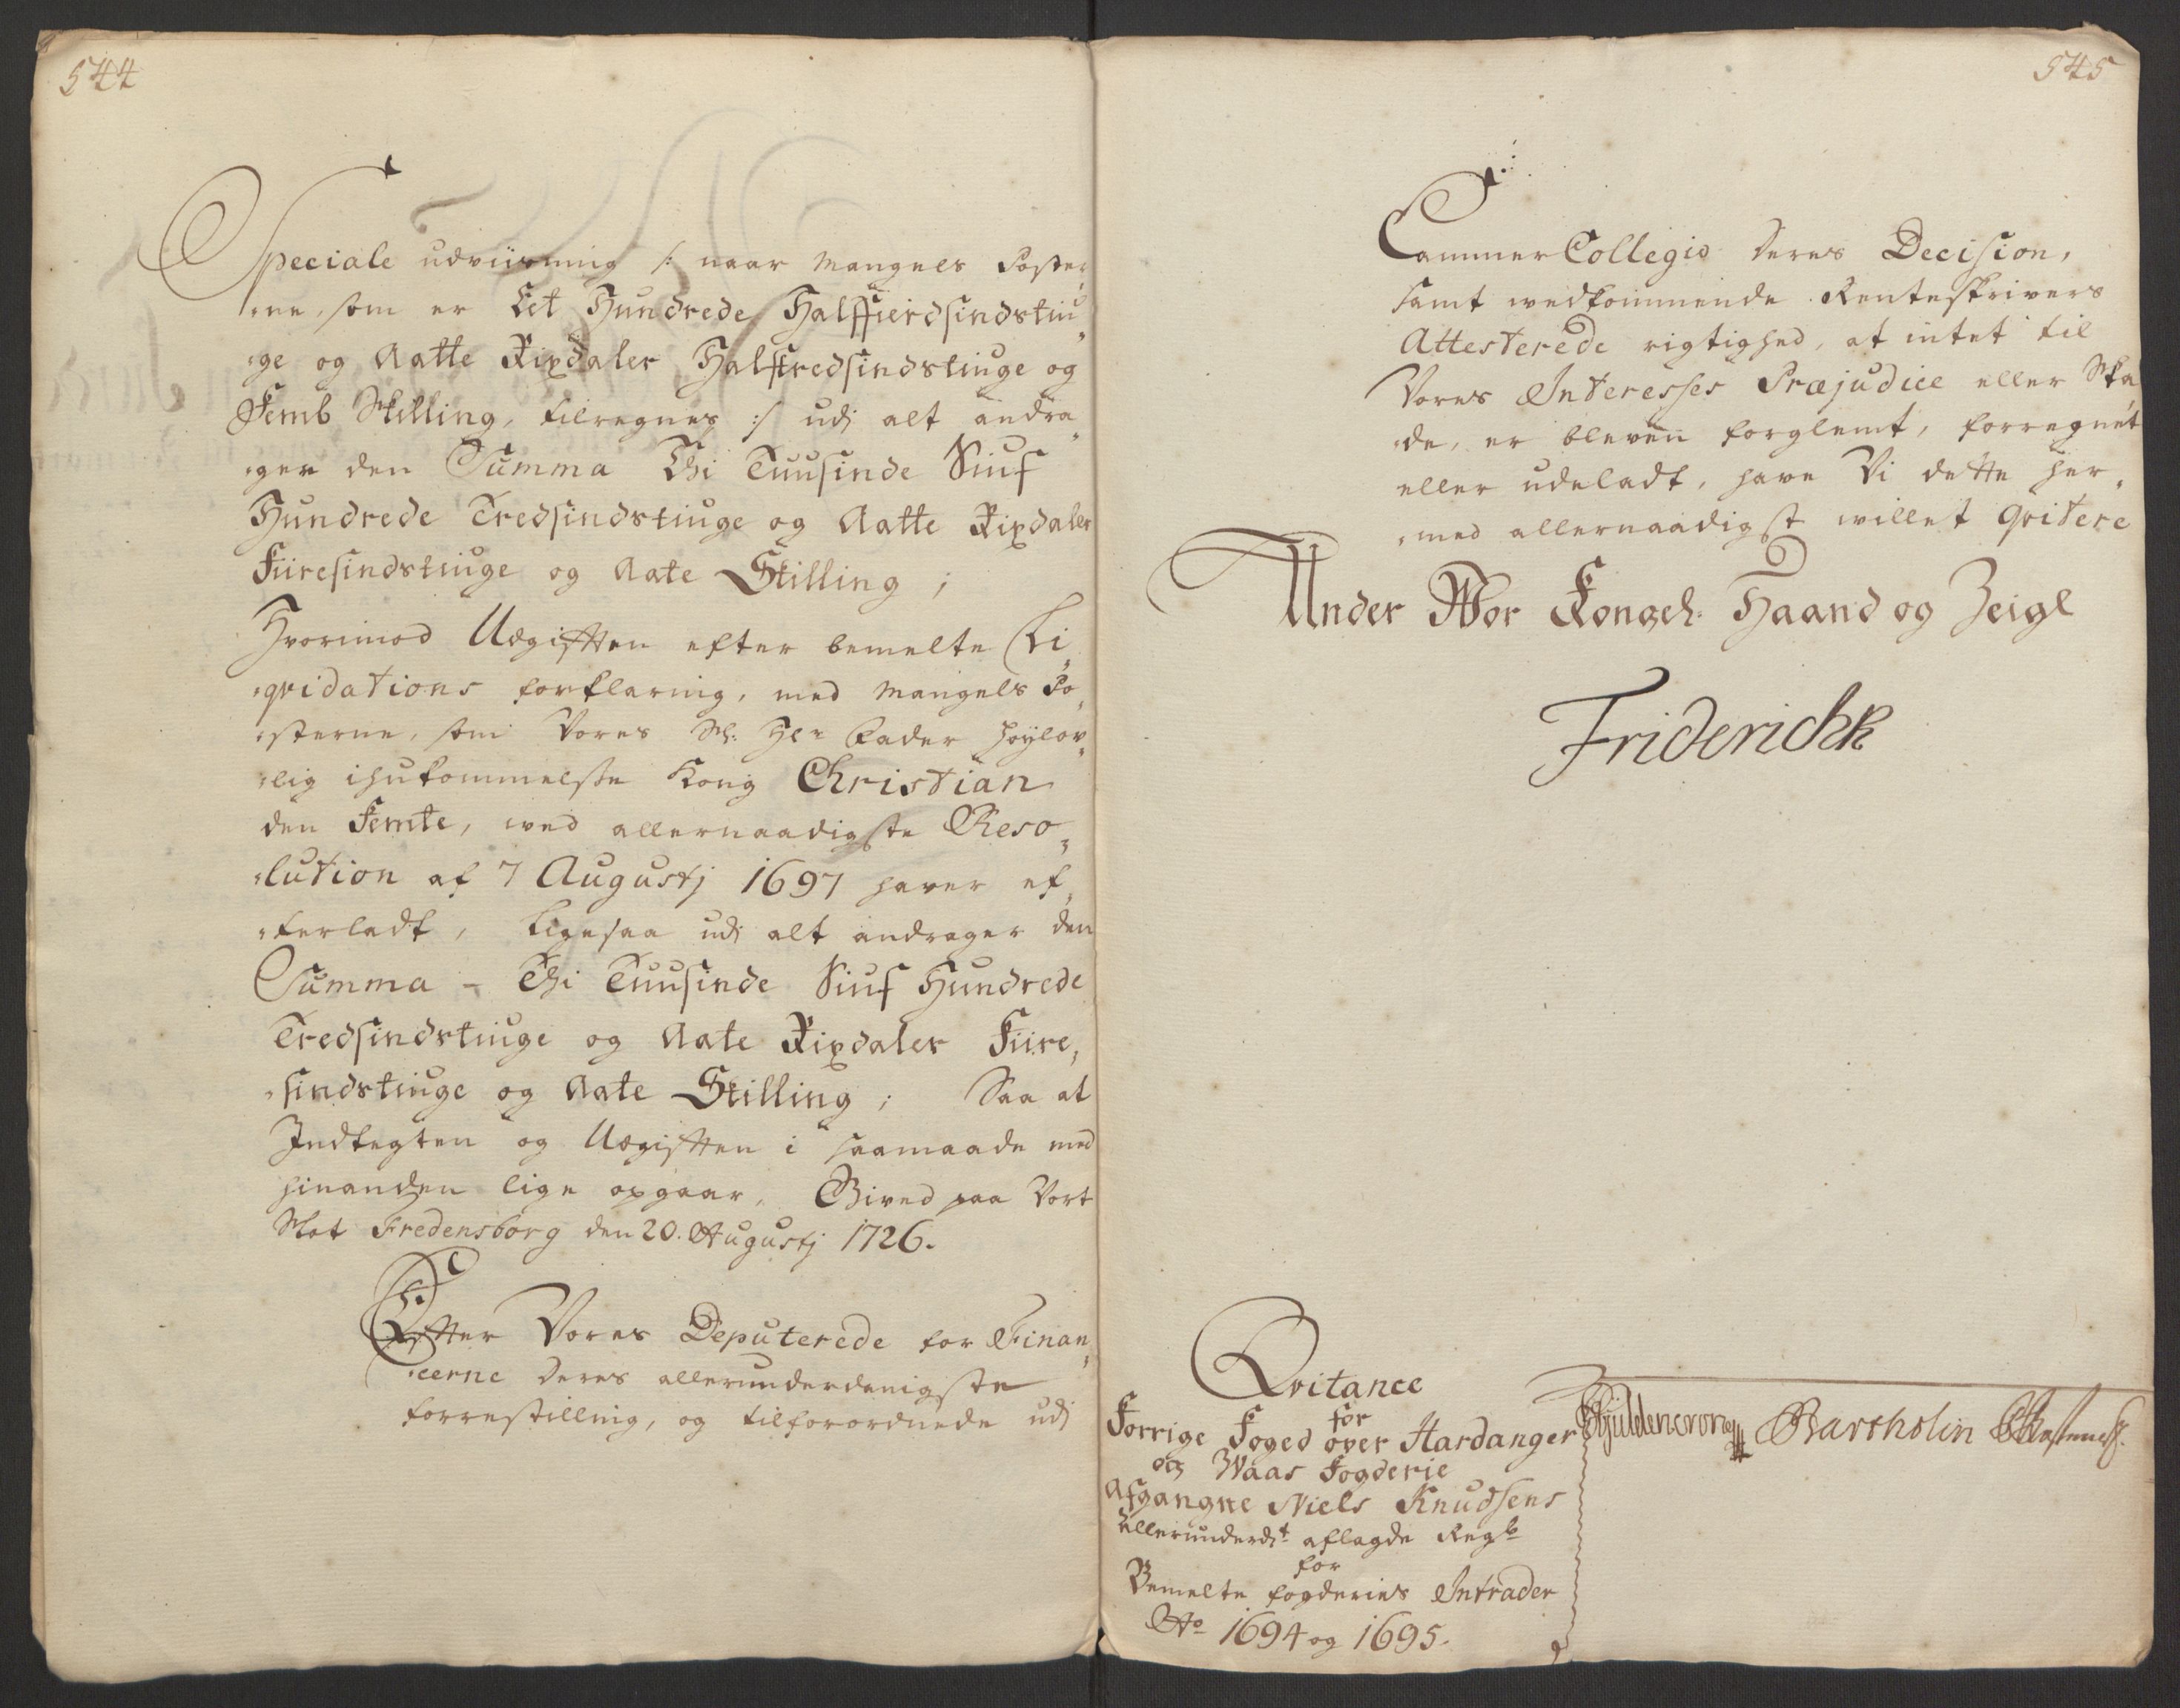 544
Speciale udviisning /: naar Mangels Poster,,
,,ne, som er Eet Hundrede Halffierdsindstiu,,
,,ge og Aatte Rixdaler Halftredsindstiuge og
Femb Skilling, tilregnes :/ udj alt andra,,
,,ger den Summa Thi Tuusinde Siuf
Hundrede Tredsindstiuge og Aatte Rixdaler
Fiiresindstiuge og Aate Skilling ;
Hvorimod Udgifften efter bemelte Li,,
,,qvidations forklaring, med Mangels Po,,
,,sterne, som Vores Sl: Hr Fader Høylov,,
,,lig ihukommelse Kong Christian
den Femte, ved allernaadigste Reso,,
,,lution af 7 Augustj 1697 haver ef,,
,,terladt, Ligesaa udj alt andrager den
Summa - Thi Tuusinde Siuf Hundrede
Tredsindstiuge og Aate Rixdaler Fiire,,
,,sindstiuge og Aate Skilling ; Saa at
Indtegten og Udgifften i saamaade med
hinanden lige opgaar, Gived paa Vort
Slot Fredensborg den 20. Augustj 1726.
Efter Vores Deputerede for Finan,,
,,cerne deres allerunderdanigste
forrestilling, og tilforordnede udj
545
CammerCollegio deres Decision,
samt vedkommende Renteskrivers
Attesterede rigtighed, at intet til
Vores Interesses Præjudice eller Ska,,
,,de, er bleven forglemt, forregnet
eller udeladt, have Vi dette her,,
,,med allernaadigst villet qvitere
Under Wor Kongel: Haand og Zeigl
Friderich R
Qvitance
for
Forrige Foged over Hardanger
og Waas Fogderie
Afgangne Niels Knudsens
allerunderdt aflagde Regsk
for
Bemelte fogderies Intrader
Ao 1694 og 1695.
Gyldencrone Bartholin